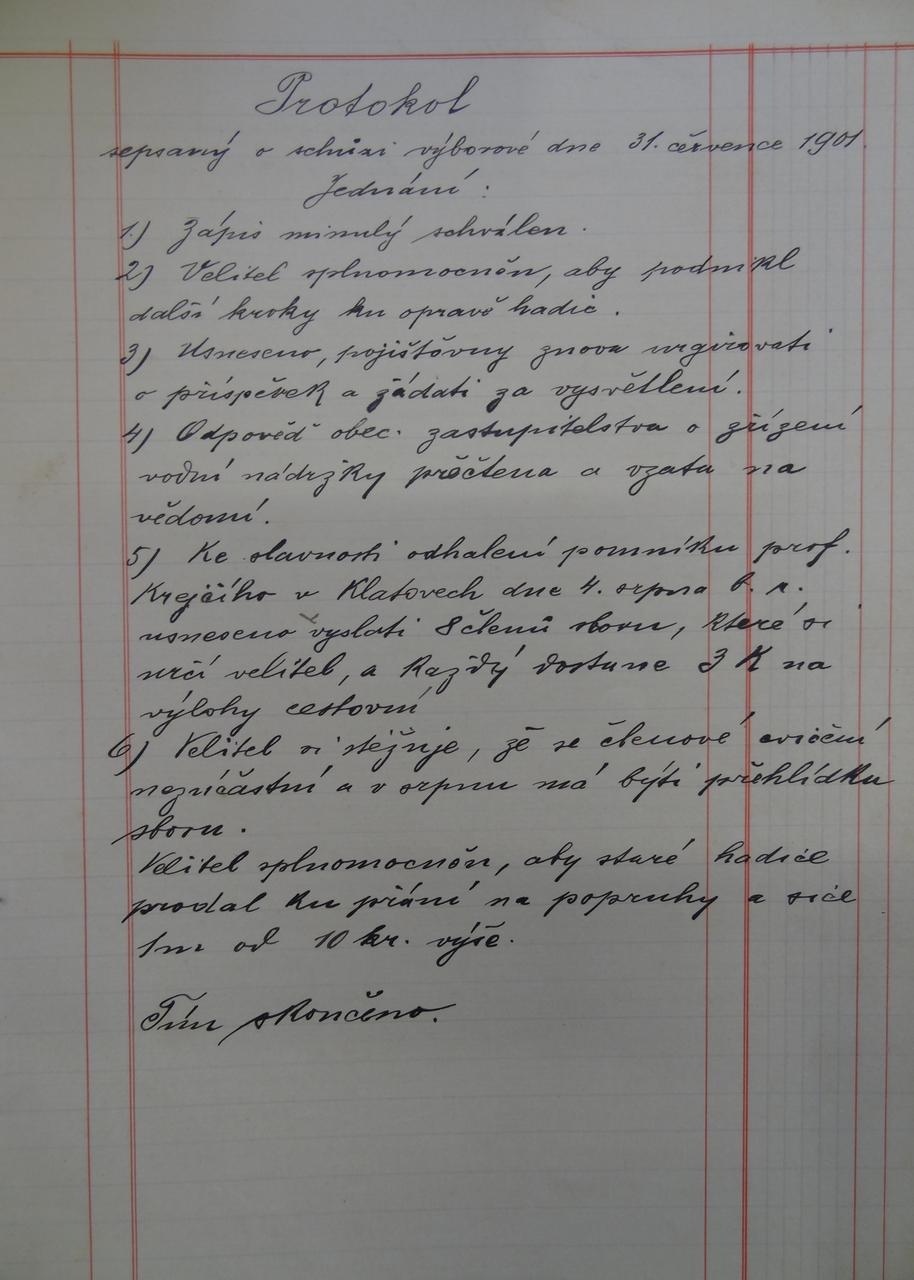 Protokol
sepsaný o schůzi výborové dne 31. července 1901.
Jednání :
1.) Zápis minulý schválen.
2) Velitel splnomocněn, aby podnikl
další kroky ku opravě hadic.
3) Usneseno, pojišťovny znova urgirovati
o příspěvek a žádati za vysvětlení.
4) Odpověď obec. zastupitelstva o zřízení
vodní nádržky přečtena a vzata na
vědomí.
5) Ke slavnosti odhalení pomníku prof.
Krejčího v Klatovech dne 4. srpna t. r.
usneseno vyslati 8 členů sboru, které si
určí velitel, a každý dostane 3 K na
výlohy cestovní
6) Velitel si stěžuje, že se členové cvičení
nezúčastní a v srpnu má býti přehlídka
sboru.
Velitel splnomocněn, aby staré hadice
prodal ku přání na popruhy a sice
1m od 10 kr. výše.
Tím skončeno.